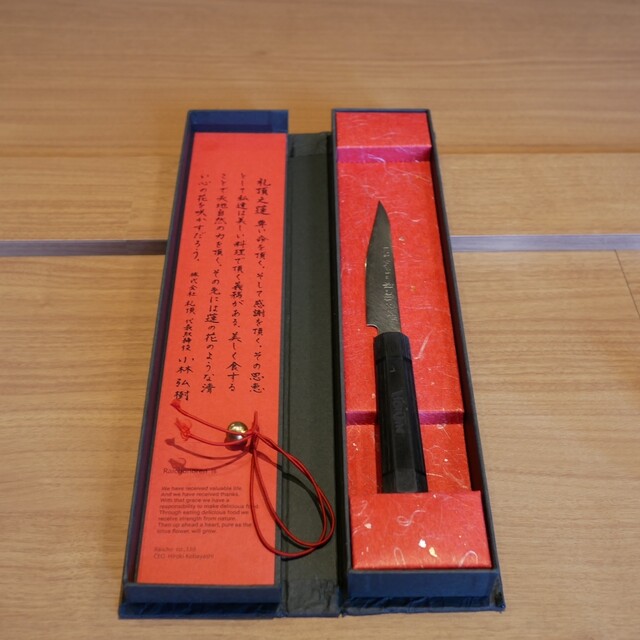 礼頂之蓮 尊い命を頂く、そして感謝を頂く、その恩恵
として私達は美しい料理で頂く義務がある、美しく食する
ことで大地自然の力を頂く、その先には蓮の花のような清
い心の花を咲かすだろう。
株式会社 礼頂 代表取締役 小林 弘樹
We have received valuable life.
And we have received thanks.
With that grace we have a
responsibility to make delicious food.
Through eating delicious food we
receive strength from nature.
Then up ahead a heart, pure as the
lotus flower will grow.
CEO Hiroki Kobayashi